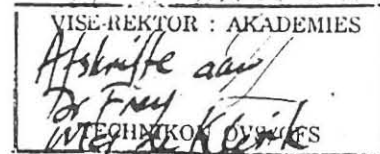 VISE-REKTOR : AKADEMIES
Afskrifte aan
Dr Frey
Mev de Klerk
TECHNIKON OVS/OFS